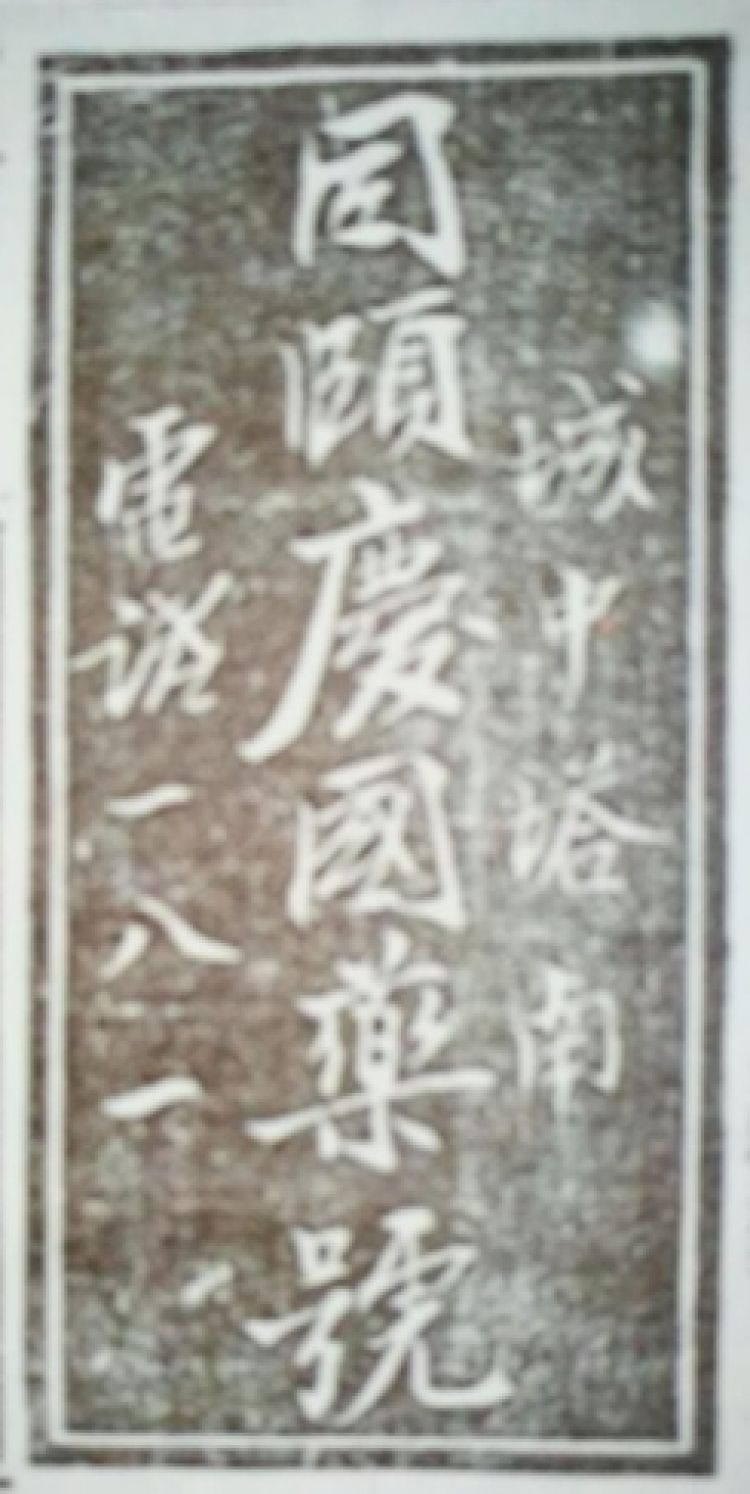 城中塔南
同頤慶國藥號
電話一八一